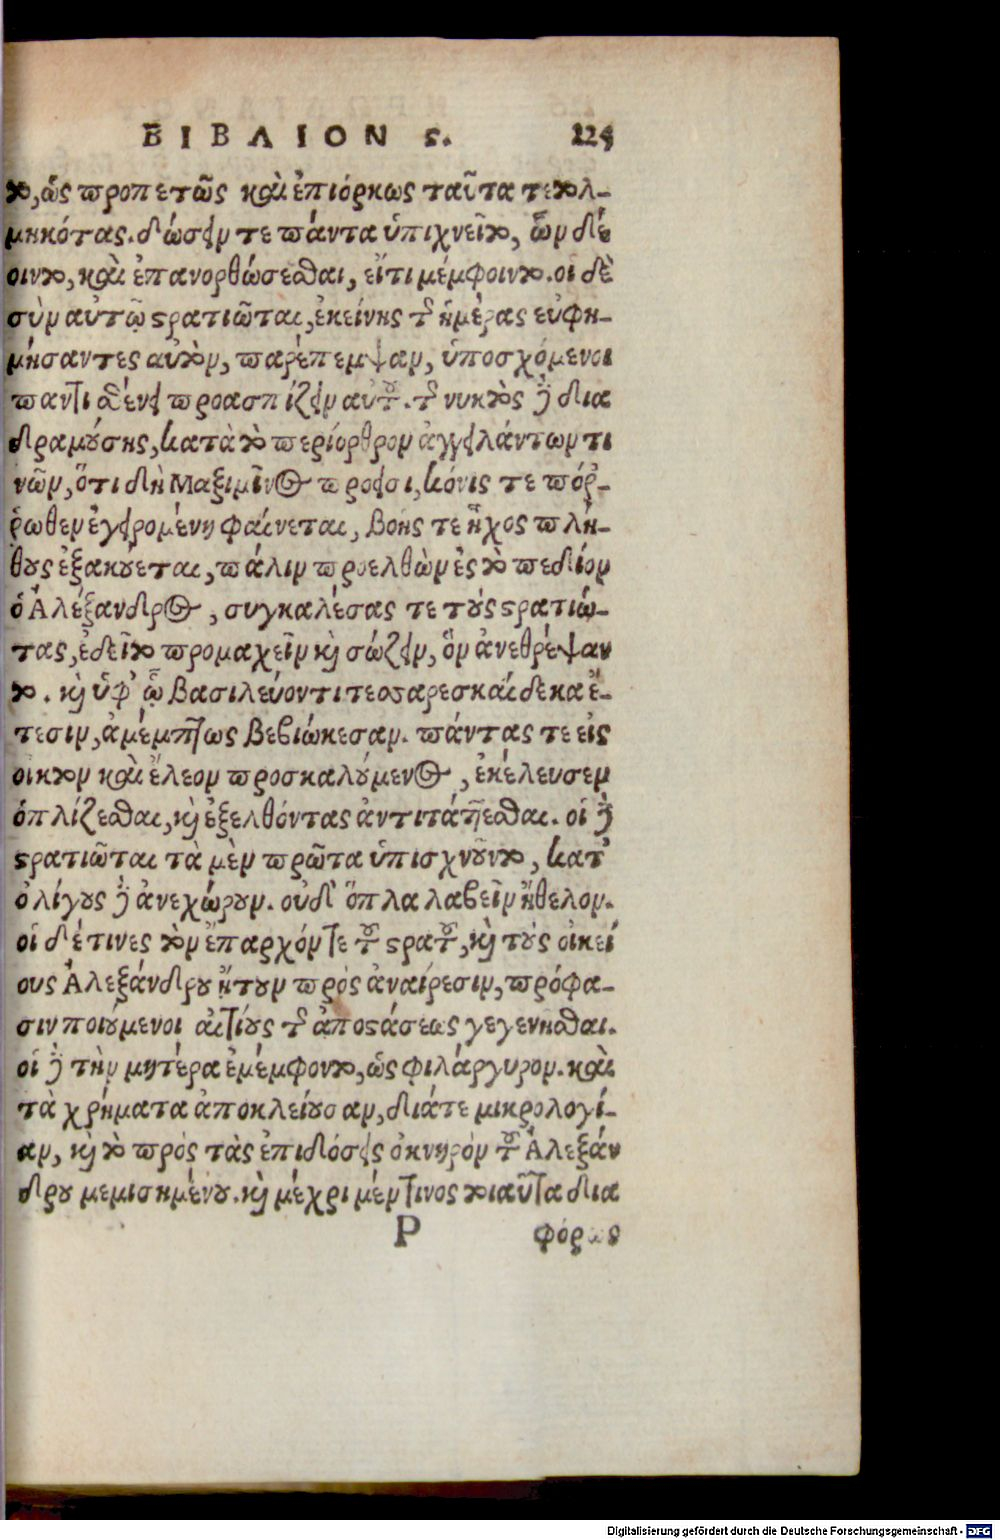 ΒΙΒΛΙΟΝ ϛ. 225
το, ὡς προπετῶς καὶ ἐπιόρκως ταῦτα τετολ-
μηκότας. δώσειν τε πάντα ὑπιχνεῖτο, ὧν δέ
οιντο, καὶ ἐπανορθώσεσθαι, εἴτι μέμφοιντο. οἱ δὲ
σὺν αὐτῷ στρατιῶται, ἐκείνης τῆς ἡμέρας εὐφη-
μήσαντες αὐτὸν, παρέπεμψαν, ὑποσχόμενοι
παντὶ σθένει προασπίζειν αὐτοῦ. τῆς νυκτὸς δὲ δια
δραμούσης, κατὰ τὸ περίορθρον ἀγγειλάντων τι
νῶν, ὅτι δὴ Μαξιμῖνος πρόσεισι, κόνις τε πόῤ-
ῥωθεν ἐγειρομένη φαίνεται, βοῆς τε ἦχος πλή-
θους ἐξακούεται, πάλιν προελθὼν ἐς τὸ πεδίον
ὁ Ἀλέξανδρος, συγκαλέσας τε τοὺς στρατιώ-
τας, ἐδεῖτο προμαχεῖν καὶ σώζειν, ὃν ἀνεθρέψαν
το. καὶ ὑφ' ᾧ βασιλεύοντι τεσσαρεσκαίδεκα ἔ-
τεσιν, ἀμέμπτως βεβιώκεσαν. πάντας τε εἰς
οἶκτον καὶ ἔλεον προσκαλούμενος, ἐκέλευσεν
ὁπλίζεσθαι, καὶ ἐξελθόντας ἀντιτάττεσθαι. οἱ δὲ
στρατιῶται τὰ μὲν πρῶτα ὑπισχνοῦντο, κατ'
ὀλίγους δὲ ἀνεχώρουν. οὐδ' ὅπλα λαβεῖν ἤθελον.
οἱ δέ τινες τὸν ἔπαρχόν τε τοῦ στρατοῦ, καὶ τοὺς οἰκεί
ους Ἀλεξάνδρου ᾔτουν πρὸς ἀναίρεσιν, πρόφα-
σιν ποιούμενοι αἰτίους τῆς ἀποστάσεως γεγενῆσθαι.
οἱ δὲ τὴν μητέρα ἐμέμφοντο, ὡς φιλάργυρον. καὶ
τὰ χρήματα ἀποκλείουσαν, διά τε μικρολογί-
αν, καὶ τὸ πρὸς τὰς ἐπιδόσεις ὀκνηρὸν τοῦ Ἀλεξάν
δρου μεμισημένου. καὶ μέχρι μέν τινος τοιαῦτα δια
P φόρως
Digitalisierung gefördert durch die Deutsche Forschungsgemeinschaft - DFG